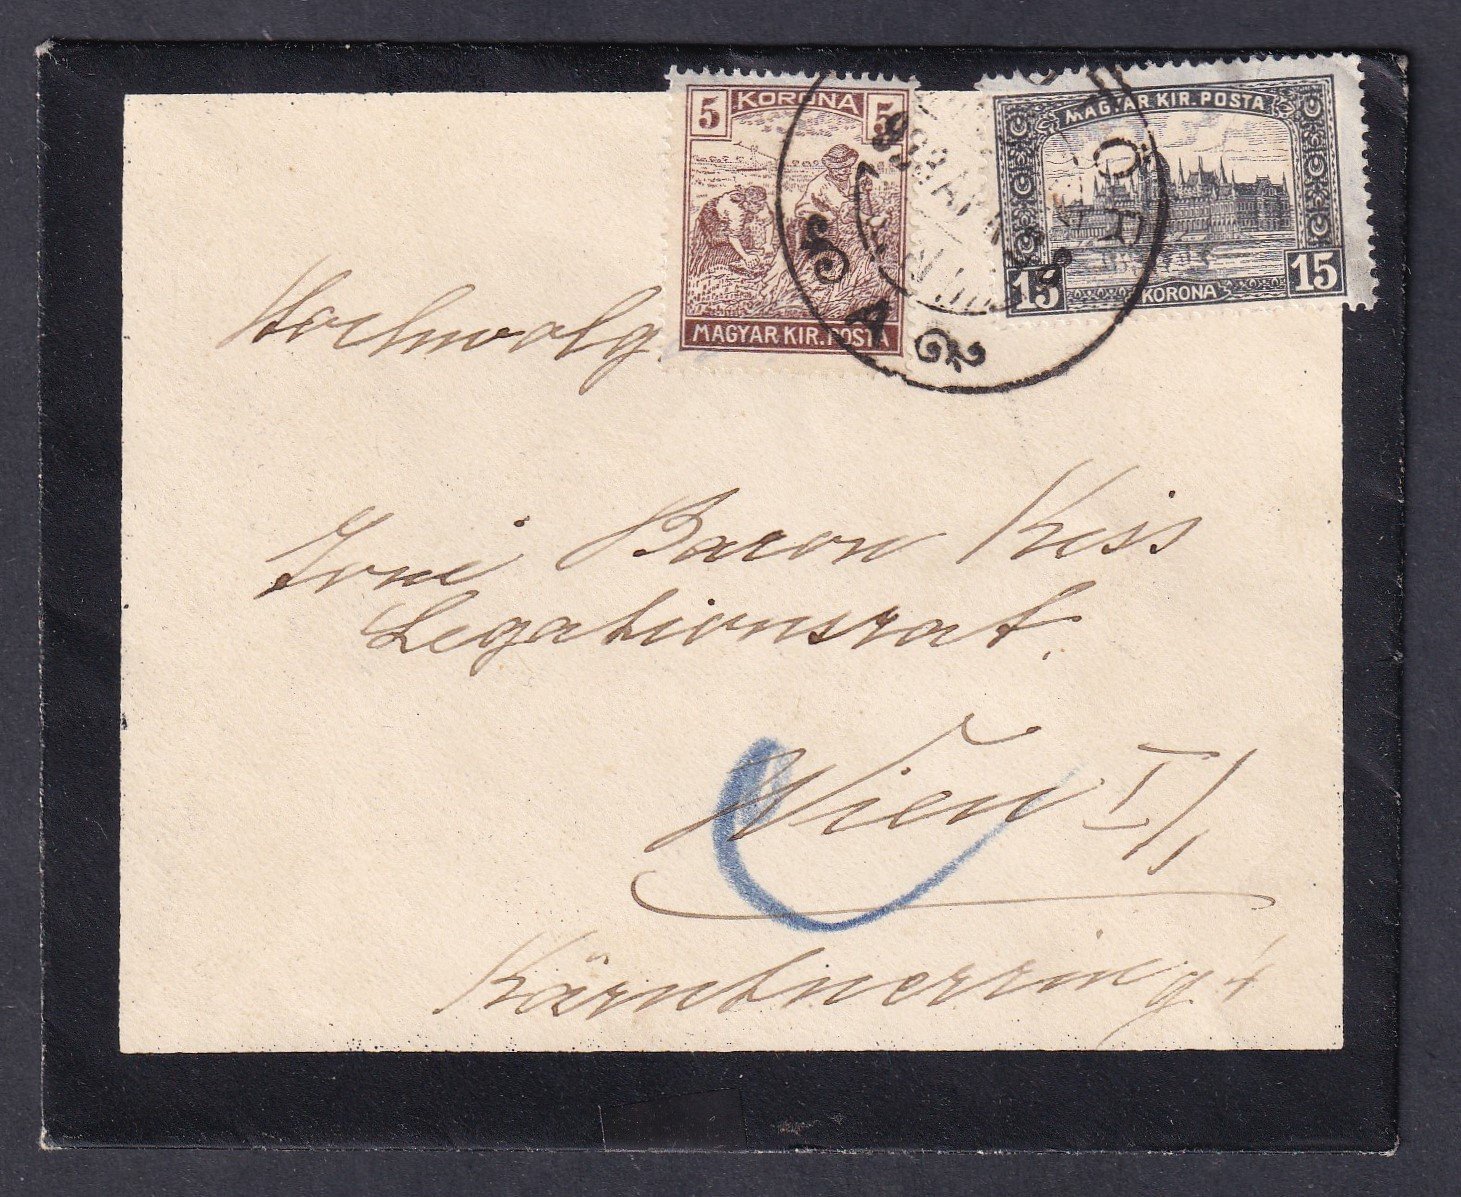 5 KORONA 5
MAGYAR KIR. POSTA
MAGYAR KIR. POSTA
15 KORONA 15
Hochwolg
Baron Kiss
Legationsrat.
Wien I/1
Kärntnerring 4